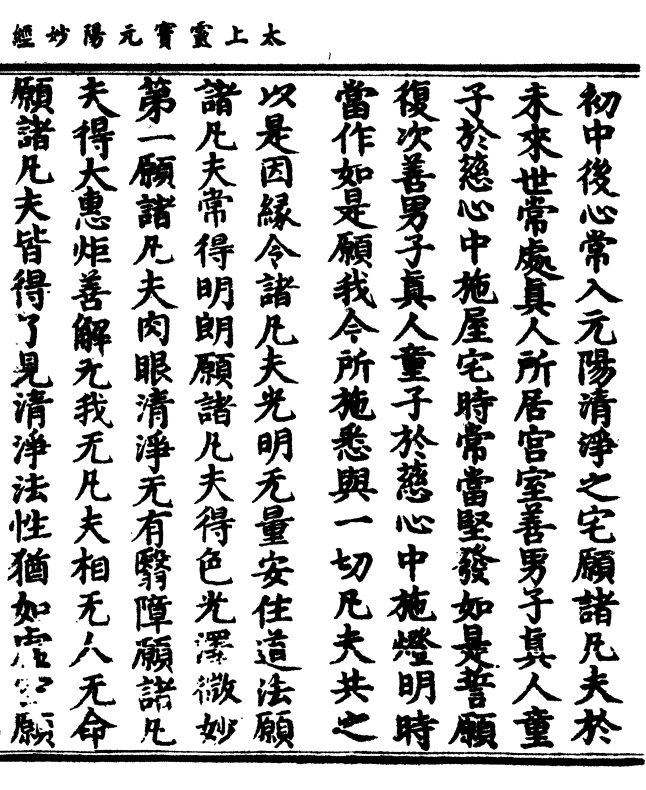 太上靈寶元陽妙經
初中後心常入元陽清淨之宅願諸凡夫於
未來世常處真人所居宮室善男子真人童
子於慈心中施屋宅時常當堅發如是誓願
復次善男子真人童子於慈心中施燈明時
當作如是願我今所施悉與一切凡夫共之
以是因緣令諸凡夫光明无量安住道法願
諸凡夫常得明朗願諸凡夫得色光澤微妙
第一願諸凡夫肉眼清淨无有翳障願諸凡
夫得大惠炬善解无我无凡夫相无人无命
願諸凡夫皆得了見清淨法性猶如虛空願